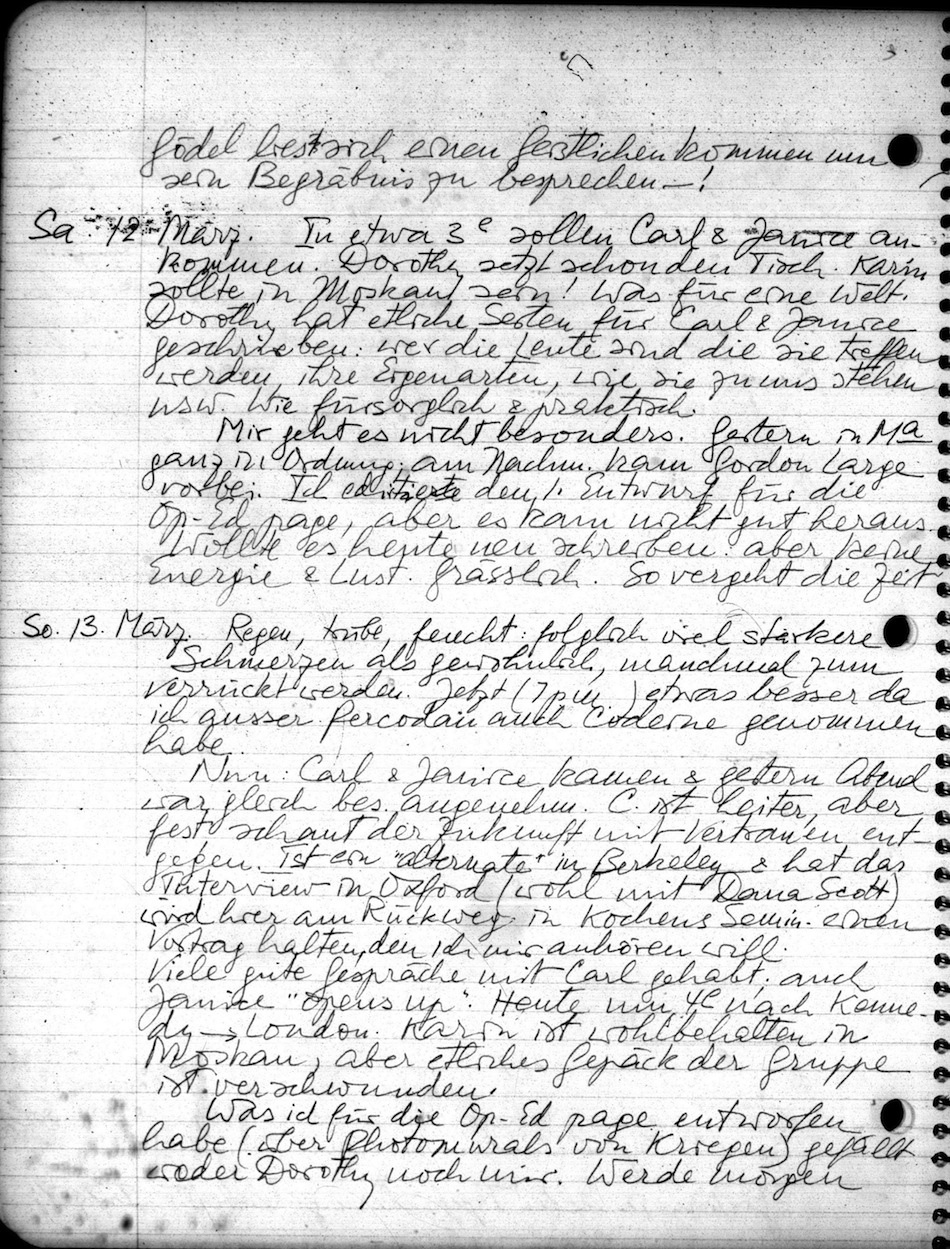 Gödel liess sich einen Geistlichen kommen um
sein Begräbnis zu besprechen —!
Sa. 12 März. In etwa 3ᵉ sollen Carl & Janice an-
kommen. Dorothy setzt schon den Tisch. Karin
sollte in Moskau sein! Was für eine Welt.
Dorothy hat etliche Seiten für Carl & Janice
geschrieben: wer die Leute sind die sie treffen
werden, ihre Eigenarten, wie sie zu uns stehen
usw. Wie fürsorglich & praktisch.
Mir geht es nicht besonders. Gestern in Ma
ganz in Ordnung; am Nachm. kam Gordon Large
vorbei. Ich editierte den 1. Entwurf für die
Op-Ed page, aber es kam nicht gut heraus.
Wollte es heute neu schreiben: aber keine
Energie & Lust. Grässlich. So vergeht die Zeit
So. 13. März. Regen, trübe, feucht: folglich viel stärkere
Schmerzen als gewöhnlich, manchmal zum
verrückt werden. Jetzt (7 pm.) etwas besser da
ich ausser Percodan auch Codeine genommen
habe.
Nun: Carl & Janice kamen & gestern Abend
war gleich bes. angenehm. C. ist heiter, aber
fest, schaut der Zukunft mit Vertrauen ent-
gegen. Ist ein "alternate" in Berkeley & hat das
Interview in Oxford (wohl mit Dana Scott)
wird hier am Rückweg in Kochens Semin. einen
Vortrag halten, den ich mir anhören will.
Viele gute Gespräche mit Carl gehabt; auch
Janice "opens up". Heute um 4ᵉ nach Kenne-
dy → London. Karin ist wohlbehalten in
Moskau, aber etliches Gepäck der Gruppe
ist verschwunden.
Was ich für die Op-Ed page entworfen
habe (über Photomurals von Kriegen) gefällt
weder Dorothy noch mir. Werde morgen